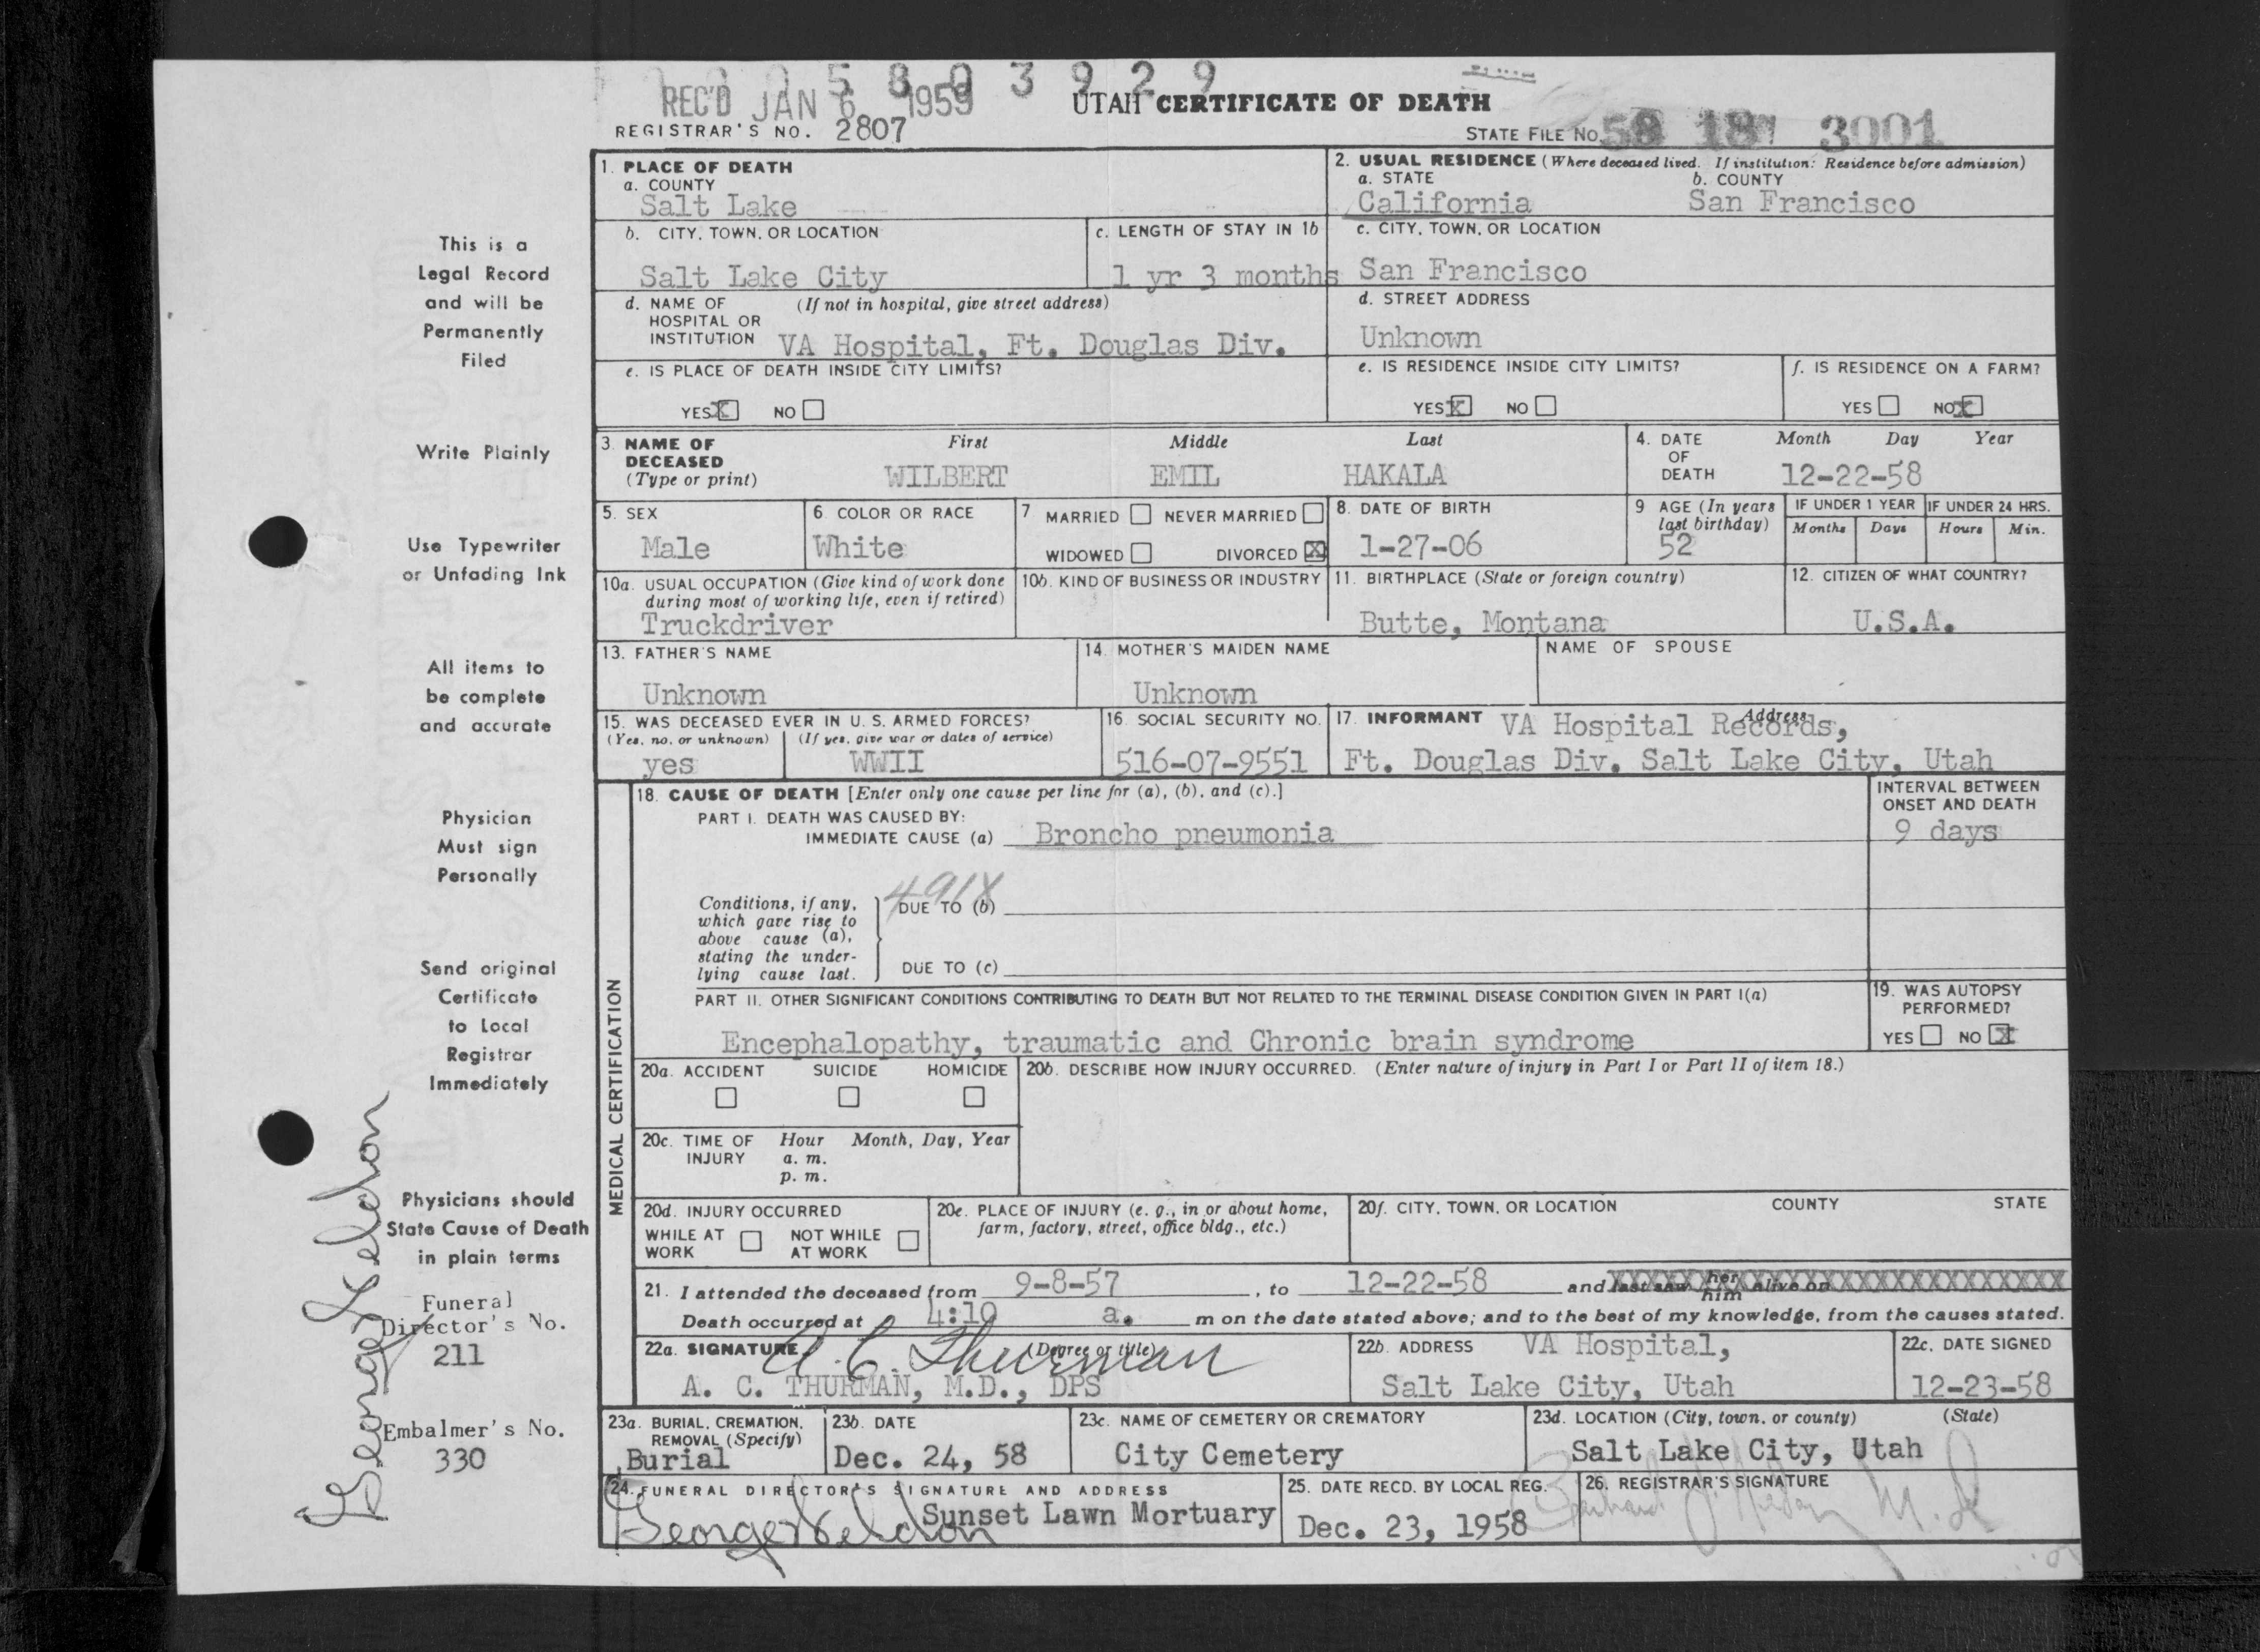 0 0 0 5 8 0 3 9 2 9
REC'D JAN 6 1959
UTAH CERTIFICATE OF DEATH
REGISTRAR'S NO. 2807
STATE FILE NO. 58 18 3001
1. PLACE OF DEATH
a. COUNTY
Salt Lake
2. USUAL RESIDENCE (Where deceased lived. If institution: Residence before admission)
a. STATE b. COUNTY
California San Francisco
b. CITY, TOWN, OR LOCATION
Salt Lake City
c. LENGTH OF STAY IN 1b
1 yr 3 months
c. CITY, TOWN, OR LOCATION
San Francisco
d. NAME OF (If not in hospital, give street address)
HOSPITAL OR
INSTITUTION VA Hospital, Ft. Douglas Div.
d. STREET ADDRESS
Unknown
e. IS PLACE OF DEATH INSIDE CITY LIMITS?
YES X NO
e. IS RESIDENCE INSIDE CITY LIMITS?
YES X NO
f. IS RESIDENCE ON A FARM?
YES NO X
3. NAME OF DECEASED (Type or print)
First Middle Last
WILBERT EMIL HAKALA
4. DATE OF DEATH
Month Day Year
12-22-58
5. SEX
Male
6. COLOR OR RACE
White
7 MARRIED NEVER MARRIED
WIDOWED DIVORCED X
8. DATE OF BIRTH
1-27-06
9 AGE (In years last birthday)
52
IF UNDER 1 YEAR IF UNDER 24 HRS.
Months Days Hours Min.
10a. USUAL OCCUPATION (Give kind of work done
during most of working life, even if retired)
Truckdriver
10b. KIND OF BUSINESS OR INDUSTRY
11. BIRTHPLACE (State or foreign country)
Butte, Montana
12. CITIZEN OF WHAT COUNTRY?
U.S.A.
13. FATHER'S NAME
Unknown
14. MOTHER'S MAIDEN NAME
Unknown
NAME OF SPOUSE
15. WAS DECEASED EVER IN U. S. ARMED FORCES?
(Yes, no, or unknown) (If yes, give war or dates of service)
yes WWII
16. SOCIAL SECURITY NO.
516-07-9551
17. INFORMANT Address
VA Hospital Records,
Ft. Douglas Div. Salt Lake City, Utah
MEDICAL CERTIFICATION
18. CAUSE OF DEATH [Enter only one cause per line for (a), (b), and (c).]
PART I. DEATH WAS CAUSED BY:
IMMEDIATE CAUSE (a) Broncho pneumonia
INTERVAL BETWEEN
ONSET AND DEATH
9 days
491X
Conditions, if any,
which gave rise to
above cause (a),
stating the under-
lying cause last.
DUE TO (b)
DUE TO (c)
PART II. OTHER SIGNIFICANT CONDITIONS CONTRIBUTING TO DEATH BUT NOT RELATED TO THE TERMINAL DISEASE CONDITION GIVEN IN PART I(a)
Encephalopathy, traumatic and Chronic brain syndrome
19. WAS AUTOPSY
PERFORMED?
YES NO X
20a. ACCIDENT SUICIDE HOMICIDE
20b. DESCRIBE HOW INJURY OCCURRED. (Enter nature of injury in Part I or Part II of item 18.)
20c. TIME OF INJURY Hour Month, Day, Year
a. m.
p. m.
20d. INJURY OCCURRED
WHILE AT WORK NOT WHILE AT WORK
20e. PLACE OF INJURY (e. g., in or about home,
farm, factory, street, office bldg., etc.)
20f. CITY, TOWN, OR LOCATION COUNTY STATE
21. I attended the deceased from 9-8-57, to 12-22-58 and last saw her him alive on
Death occurred at 4:10 a. m on the date stated above; and to the best of my knowledge, from the causes stated.
22a. SIGNATURE (Degree or title)
A. C. Thurman
A. C. THURMAN, M.D., DPS
22b. ADDRESS VA Hospital,
Salt Lake City, Utah
22c. DATE SIGNED
12-23-58
23a. BURIAL, CREMATION,
REMOVAL (Specify)
Burial
23b. DATE
Dec. 24, 58
23c. NAME OF CEMETERY OR CREMATORY
City Cemetery
23d. LOCATION (City, town, or county) (State)
Salt Lake City, Utah
24. FUNERAL DIRECTOR'S SIGNATURE AND ADDRESS
Sunset Lawn Mortuary
George Weldon
25. DATE RECD. BY LOCAL REG.
Dec. 23, 1958
26. REGISTRAR'S SIGNATURE
This is a
Legal Record
and will be
Permanently
Filed
Write Plainly
Use Typewriter
or Unfading Ink
All items to
be complete
and accurate
Physician
Must sign
Personally
Send original
Certificate
to Local
Registrar
Immediately
Physicians should
State Cause of Death
in plain terms
Funeral
Director's No.
211
Embalmer's No.
330
George Weldon